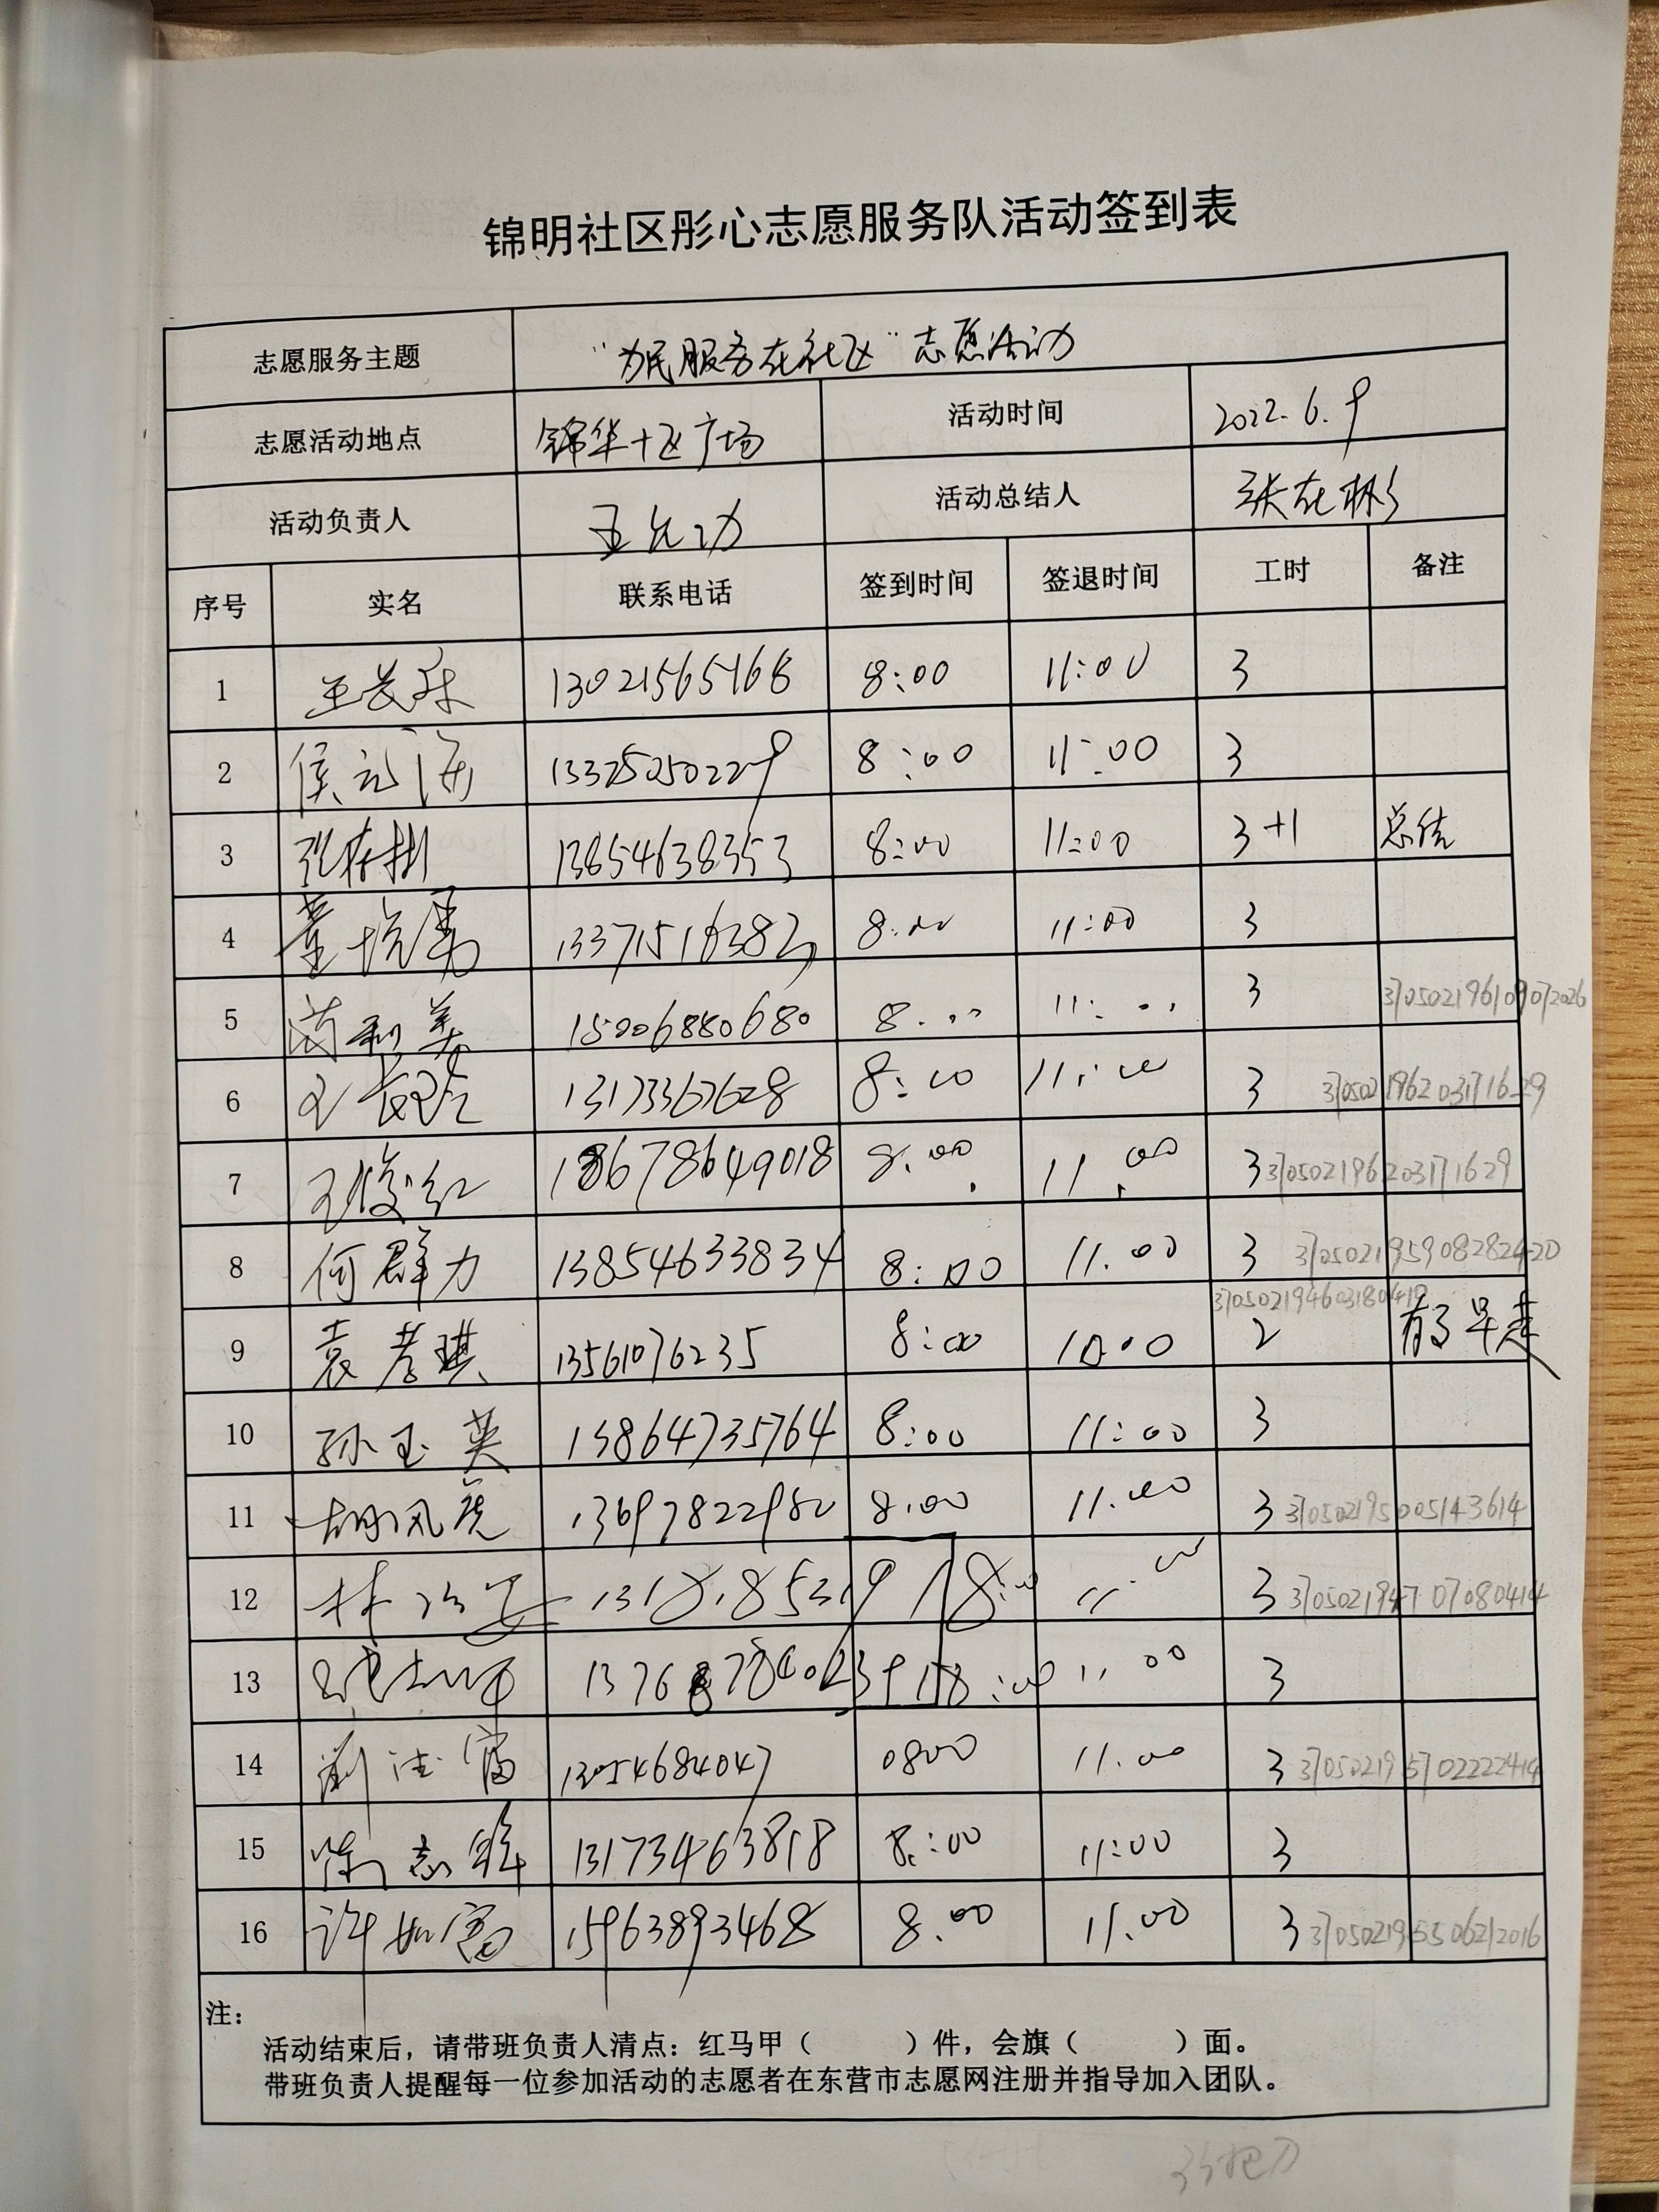 锦明社区彤心志愿服务队活动签到表
志愿服务主题 "为民服务在社区"志愿活动
志愿活动地点 锦华十区广场 活动时间 2022.6.9
活动负责人 王允功 活动总结人 张在彬
序号 实名 联系电话 签到时间 签退时间 工时 备注
1 13021565168 8:00 11:00 3
2 侯 13325250229 8:00 11:00 3
3 13854638353 8:00 11:00 3+1 总结
4 董 13371516382 8:00 11:00 3
5 美 15006880680 8:00 11:00 3 370502196109072026
6 13173367628 8:00 11:00 3 370502196203171629
7 王俊红 18678649018 8:00 11:00 3 370502196203171629
8 何群力 13854633834 8:00 11:00 3 370502195908282420
9 袁孝琪 13561076235 8:00 10:00 2 早走
10 孙玉英 13864735764 8:00 11:00 3
11 胡风虎 8:00 11:00 3 370502195005143614
12 林 8:00 11:00 3 370502194707080414
13 8:00 11:00 3
14 刘 富 13054684047 0800 11:00 3 370502195702222414
15 陈志 8:00 11:00 3
16 许如富 15963893468 8:00 11:00 3 370502195506212016
注:
活动结束后，请带班负责人清点：红马甲（ ）件，会旗（ ）面。
带班负责人提醒每一位参加活动的志愿者在东营市志愿网注册并指导加入团队。